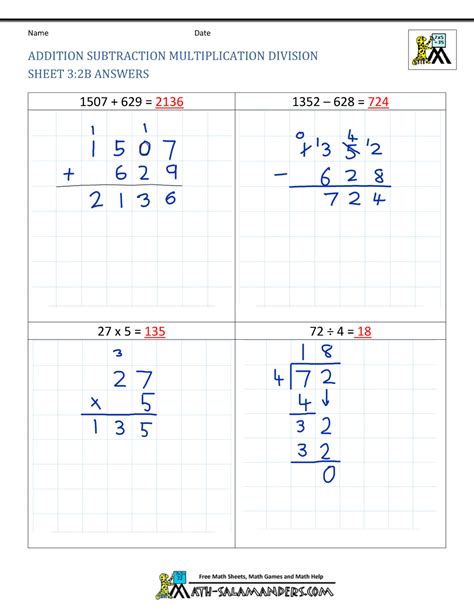 Name Date
ADDITION SUBTRACTION MULTIPLICATION DIVISION
SHEET 3:2B ANSWERS
1507 + 629 = 2136
1352 – 628 = 724
1 1
1 5 0 7
+ 6 2 9
2 1 3 6
0 4
1 1 3 5 1 2
- 6 2 8
7 2 4
27 x 5 = 135
72 ÷ 4 = 18
3
2 7
x 5
1 3 5
1 8
4 7 2
4 ↓
3 2
3 2
0
Free Math Sheets, Math Games and Math Help
MATH-SALAMANDERS.COM